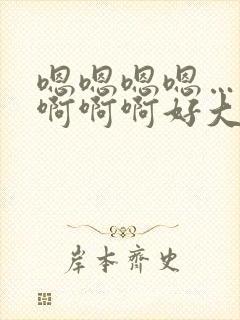 嗯嗯嗯嗯…
啊啊啊好大
岸本齐史